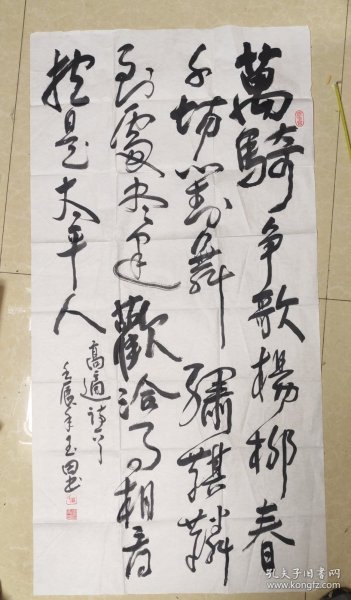 萬騎争歌楊柳春
千場對舞繡麒麟
到處盡逢歡洽事相看
揔是太平人
高適詩
壬辰年玉田書
孔夫子旧书网